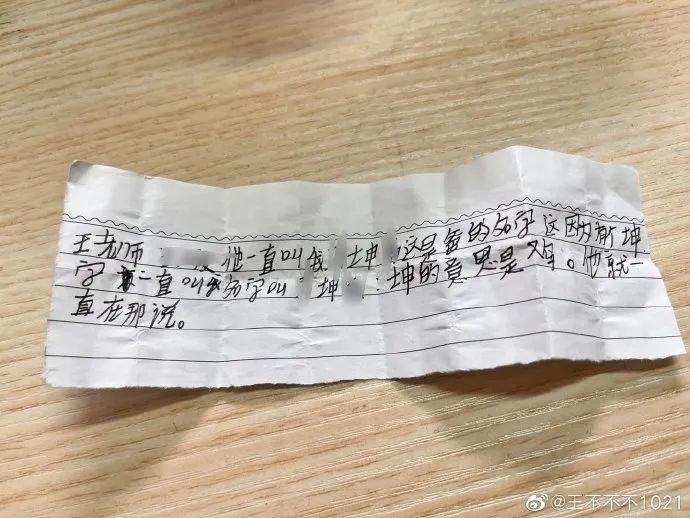 王老师: 他一直叫我 坤 这是爸的名字这因为有坤
字 一直叫我名字叫 坤 坤的意思是鸡。他就一
直在那说。
@王不不不1021